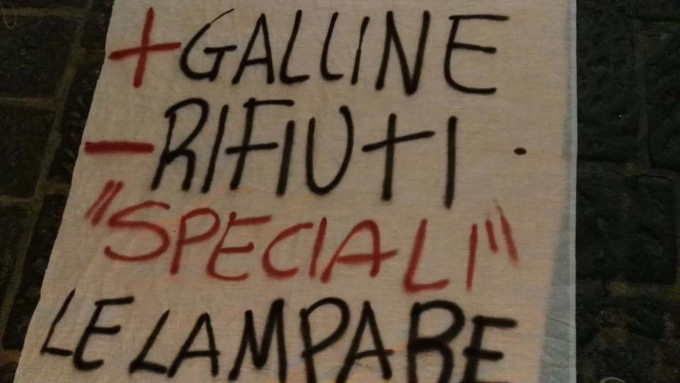 +GALLINE
-RIFIUTI.
"SPECIALI"
LE LAMPARE